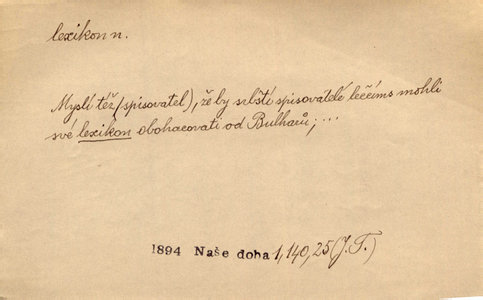 lexikon n.
Myslí též (spisovatel), že by srbští spisovatelé lečíms mohli
své lexikon obohacovati od Bulharů; ...
1894 Naše doba 1, 140, 25 (J. T.)